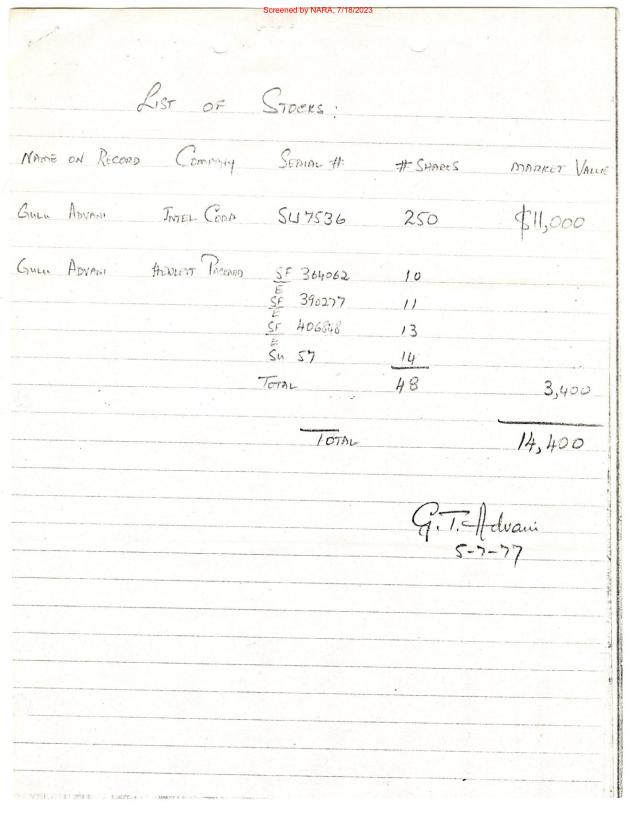 Screened by NARA, 7/18/2023
LIST OF STOCKS:
NAME ON RECORD COMPANY SERIAL # # SHARES MARKET VALUE
GULU ADVANI INTEL CORP SU 7536 250 $11,000
GULU ADVANI HEWLETT PACKARD SF/E 364062 10
SF/E 390277 11
SF/E 406848 13
SU 57 14
TOTAL 48 3,400
TOTAL 14,400
G.T. Advani
5-7-77